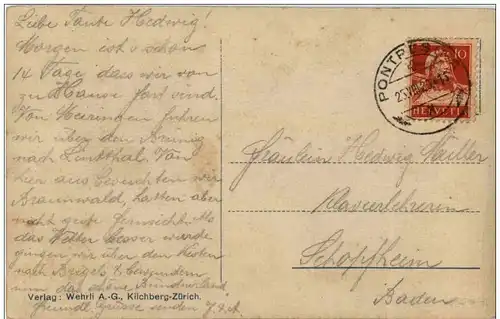 Liebe Tante Hedwig!
Morgen ist's schon
14 Tage dass wir von
zu Hause fort sind.
Von Meiringen fuhren
wir über den Brünig
nach Linthal. Von
hier aus
Braunwald, hatten aber
nicht gute Fernsicht. Als
das Wetter besser wurde
gingen wir über den Kisten
nach Brigels &
nun das schöne Bündnerland
Freundl. Grüsse senden
Verlag: Wehrli A.-G., Kilchberg-Zürich.
PONTRES
10
HELVETIA
Fräulein Hedwig Müller
Klavierlehrerin
Schopfheim
Baden